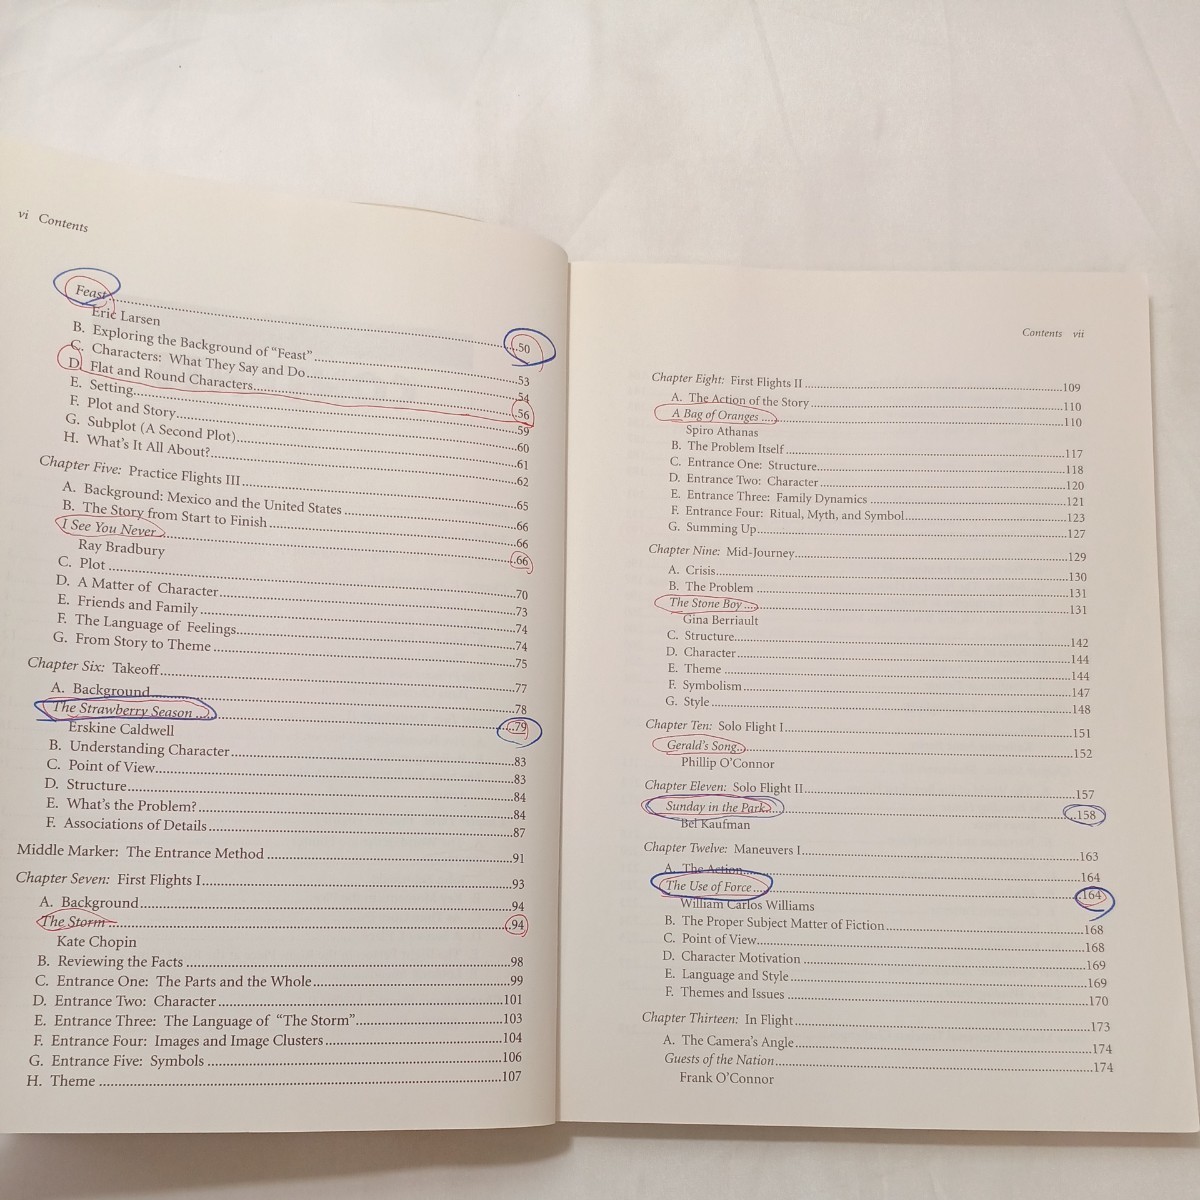 vi Contents
Feast..........50
Eric Larsen
B. Exploring the Background of “Feast”..........53
C. Characters: What They Say and Do..........54
D. Flat and Round Characters..........56
E. Setting..........59
F. Plot and Story..........60
G. Subplot (A Second Plot)..........61
H. What's It All About?..........62
Chapter Five: Practice Flights III..........65
A. Background: Mexico and the United States..........66
B. The Story from Start to Finish..........66
I See You Never..........66
Ray Bradbury
C. Plot..........70
D. A Matter of Character..........73
E. Friends and Family..........74
F. The Language of Feelings..........74
G. From Story to Theme..........75
Chapter Six: Takeoff..........77
A. Background..........78
The Strawberry Season..........79
Erskine Caldwell
B. Understanding Character..........83
C. Point of View..........83
D. Structure..........84
E. What's the Problem?..........84
F. Associations of Details..........87
Middle Marker: The Entrance Method..........91
Chapter Seven: First Flights I..........93
A. Background..........94
The Storm..........94
Kate Chopin
B. Reviewing the Facts..........98
C. Entrance One: The Parts and the Whole..........99
D. Entrance Two: Character..........101
E. Entrance Three: The Language of “The Storm”..........103
F. Entrance Four: Images and Image Clusters..........104
G. Entrance Five: Symbols..........106
H. Theme..........107
Contents vii
Chapter Eight: First Flights II..........109
A. The Action of the Story..........110
A Bag of Oranges..........110
Spiro Athanas
B. The Problem Itself..........117
C. Entrance One: Structure..........118
D. Entrance Two: Character..........120
E. Entrance Three: Family Dynamics..........121
F. Entrance Four: Ritual, Myth, and Symbol..........123
G. Summing Up..........127
Chapter Nine: Mid-Journey..........129
A. Crisis..........130
B. The Problem..........131
The Stone Boy..........131
Gina Berriault
C. Structure..........142
D. Character..........144
E. Theme..........144
F. Symbolism..........147
G. Style..........148
Chapter Ten: Solo Flight I..........151
Gerald's Song..........152
Phillip O'Connor
Chapter Eleven: Solo Flight II..........157
Sunday in the Park..........158
Bel Kaufman
Chapter Twelve: Maneuvers I..........163
A. The Action..........164
The Use of Force..........164
William Carlos Williams
B. The Proper Subject Matter of Fiction..........168
C. Point of View..........168
D. Character Motivation..........169
E. Language and Style..........169
F. Themes and Issues..........170
Chapter Thirteen: In Flight..........173
A. The Camera's Angle..........174
Guests of the Nation..........174
Frank O'Connor